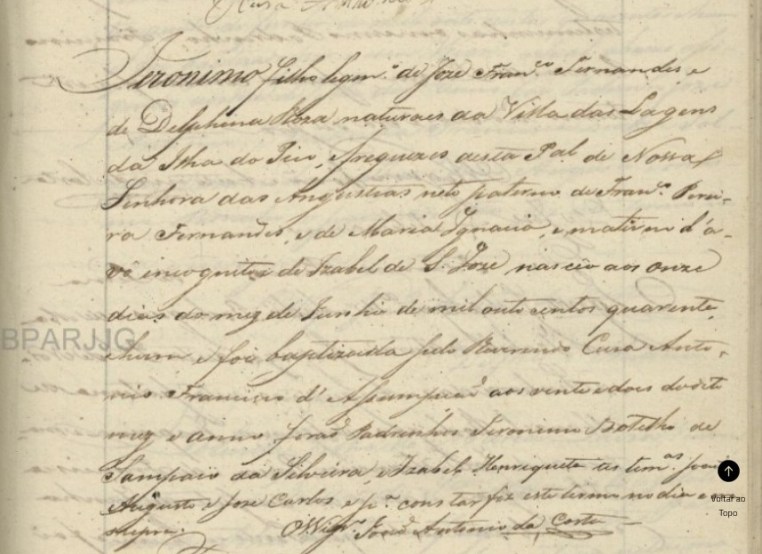 Jeronimo filho legm.º de Joze Fran.co Fernandes e
de Delphina Roza naturaes da Villa das Lagens
da Ilha do Pico, e freguezes desta Pal de Nossa
Senhora das Angustias neto paterno de Fran.co Perei-
ra Fernandes, e de Maria Ignacia, e materno d'a-
vô incognito e de Izabel de S. Joze nasceo aos onze
dias do mez de Junho de mil oito centos quarenta
e hum e foi baptizado pelo Reverendo Cura Anto-
nio Francisco d'Assumpção aos vinte e dois do dito
mez e anno forão Padrinhos Jeronimo Botelho de
Sampaio da Silveira, e Izabel Henriqueta as tem.as João
Augusto e Joze Carlos e p.ª constar fiz este termo no dia e
supra. O Vigr.º João Antonio da Costa
BPARJJG
Voltar ao
Topo